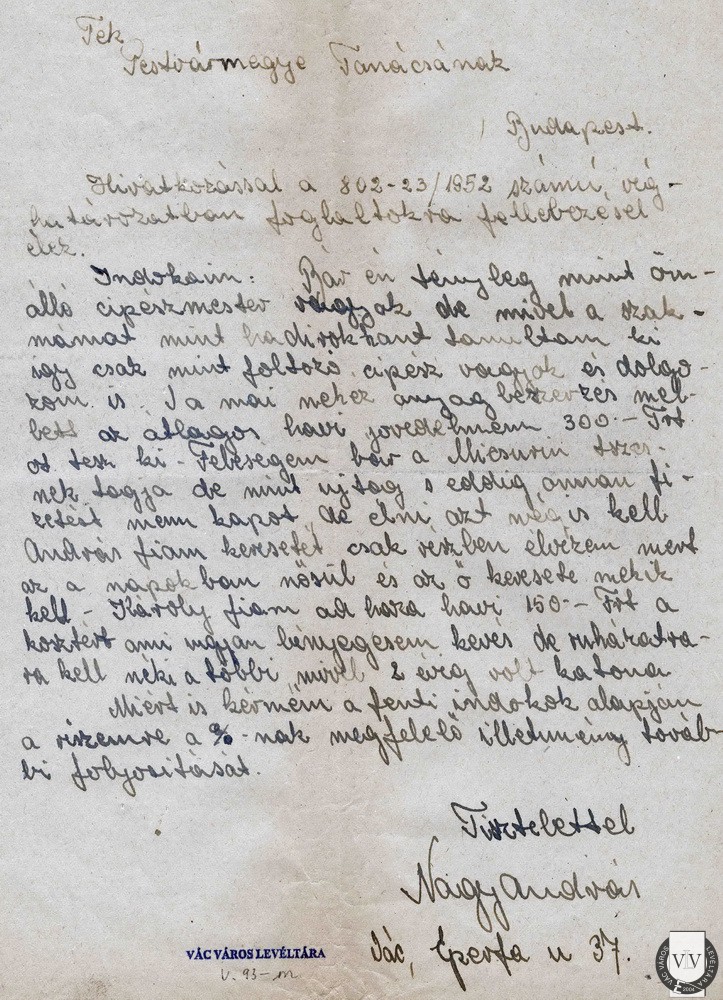 Tek.
Pestvármegye Tanácsának
Budapest.
Hivatkozással a 802-23/1952 számú, vég-
határozatban foglaltokra fellebezésel
élek.
Indokaim: Bár én tényleg mint ön-
álló cipészmester vagyok de mivel a szak-
mámat mint hadirokkant tanultam ki
így csak mint foltozó cipész vagyok és dolgo-
zom is. S a mai nehez anyag beszerzés mel-
lett az átlagos havi jövedelmem 300.- Frt
ot tesz ki - Feleségem bár a Micsurin tszcs-
nek tagja de mint ujtag s eddig onnan fi-
zetést nem kapot, de élni azt még is kell
András fiam keresetét csak részben élvezem mert
az a napokban nősül és az ő keresete nekik
kell - Károly fiam ad haza havi 150- Frt a
kosztért ami ugyan lényegesen kevés de ruházatra-
ra kell néki a többi mivel 2 évig volt katona
Miért is kérném a fenti indokok alapján
a részemre a %-nak megfelelő illetmény továb-
bi folyositását.
Tisztelettel
Nagy András
Vác, Eperfa u 37.
VÁC VÁROS LEVÉLTÁRA
V. 93-m
VÁC VÁROS LEVÉLTÁRA
VLV
2004